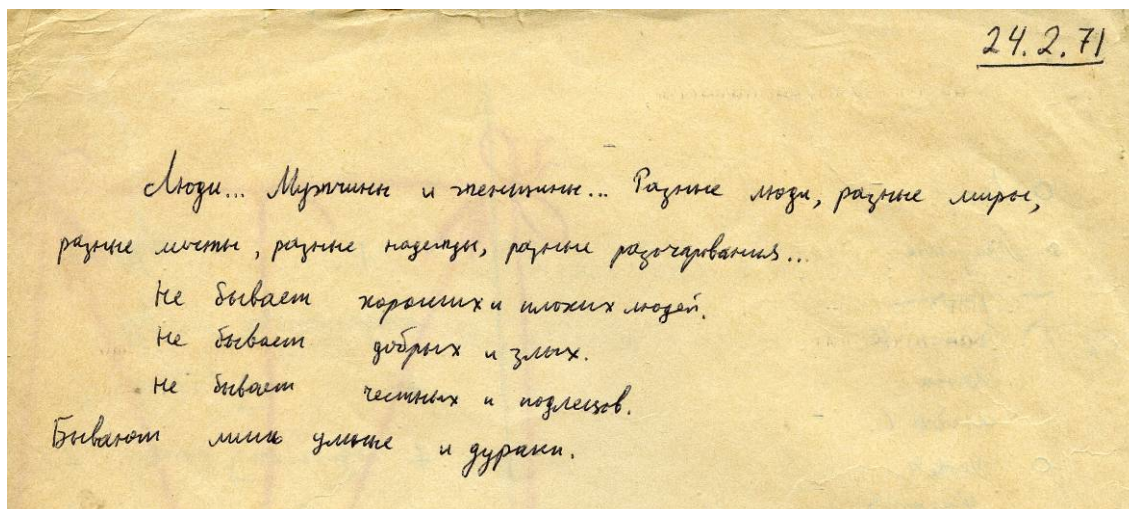 24.2.71
Люди... Мужчины и женщины... Разные люди, разные миры,
разные мечты, разные надежды, разные разочарования...
Не бывает хороших и плохих людей.
Не бывает добрых и злых.
Не бывает честных и подлецов.
Бывают лишь умные и дураки.